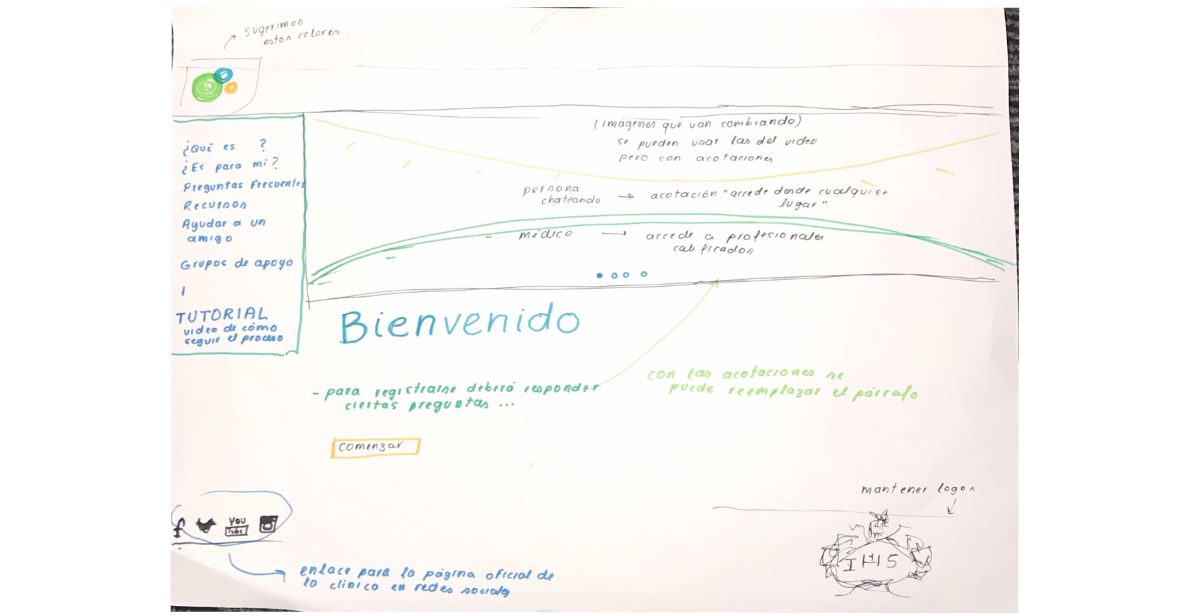 sugerimos
estos colores.
(imágenes que van cambiando)
se pueden usar las del video
pero con acotaciones
persona
chateando → acotación "accede desde cualquier
lugar"
médico → accede a profesionales
calificados
¿Qué es ?
¿Es para mi?
Preguntas Frecuentes
Recursos
Ayudar a un
amigo
Grupos de apoyo
TUTORIAL
video de cómo
seguir el proceso
Bienvenido
- para registrarse deberá responder
ciertas preguntas ...
con las acotaciones se
puede reemplazar el párrafo
comenzar
mantener logos
f
You
Tube
IHS
enlace para la página oficial de
la clínica en redes sociales